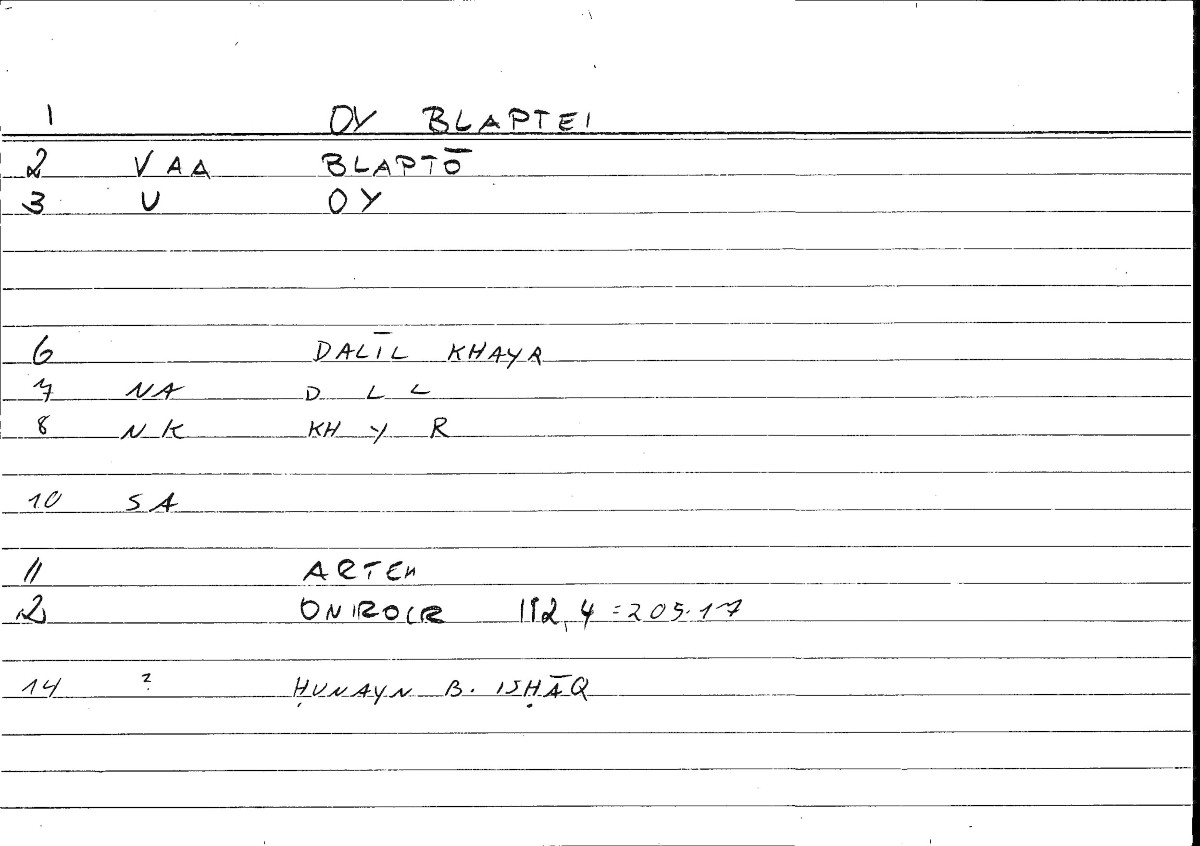 1 OY BLAPTEI
2 VAA BLAPTŌ
3 U OY
6 DALĪL KHAYR
7 NA D L L
8 NK KH Y R
10 SA
11 ARTEM
2 ONIROCR 112,4 = 205.17
14 ? ḤUNAYN B. ISḤĀQ